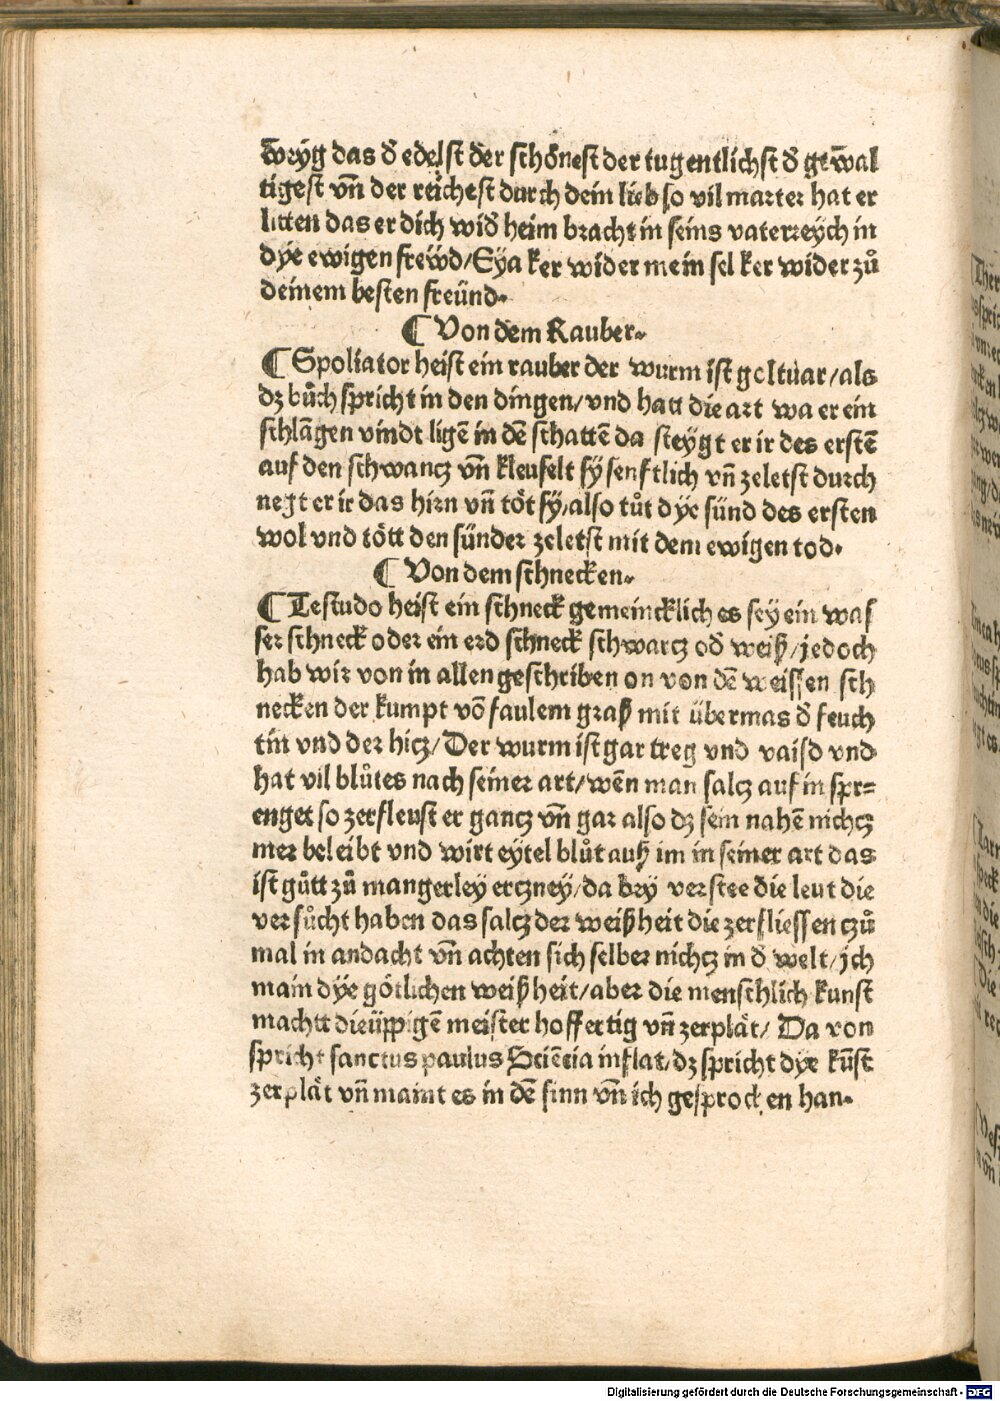 weyg das d̄ edelst der schönest der tugentlichst d̄ gewal
tigest vn̄ der reichest durch dein lieb so vil marter hat er
litten das er dich wid̄ heim bracht in seins vaterreÿch in
dÿe ewigen freẅd/Eÿa ker wider mein sel ker wider zů
deinem besten freünd.
¶ Von dem Rauber.
¶ Spoliator heist ein rauber der wurm ist geltuar/als
dz bůch spricht in den dingen/vnd hatt die art wa er ein
schlāgen vindt ligē in dē schattē da steygt er ir des erstē
auf den schwancz vn̄ kleufelt sÿ senftlich vn̄ zeletst durch
negt er ir das hirn vn̄ töt sÿ/also tůt dÿe sünd des ersten
wol vnd tött den sünder zeletst mit dem ewigen tod.
¶ Von dem schnecken.
¶ Testudo heist ein schneck gemeincklich es seÿ ein was
ser schneck oder ein erd schneck schwarcz od̄ weiß/jedoch
hab wir von in allen geschriben on von dē weissen sch
necken der kumpt vō faulem graß mit übermas d̄ feuch
tin vnd der hicz/Der wurm ist gar treg vnd vaisd vnd
hat vil blůtes nach seiner art/wēn man salcz auf in spr=
enget so zerfleust er gancz vn̄ gar also dz sein nahē nichcz
mer beleibt vnd wirt eÿtel blůt auß im in seiner art das
ist gůtt zů mangerleÿ erczneÿ/da beÿ verstee die leut die
versůcht haben das salcz der weißheit die zerfliessen czů
mal in andacht vn̄ achten sich selber nichcz in d̄ welt/jch
main dÿe götlichen weißheit/aber die menschlich kunst
machtt die üppigē meister hoffertig vn̄ zerplät/ Da von
spricht sanctus paulus Sciēcia inflat/dz spricht dÿe kūst
zerplät vn̄ maint es in dē sinn vn̄ ich gesprochen han.
Digitalisierung gefördert durch die Deutsche Forschungsgemeinschaft - DFG